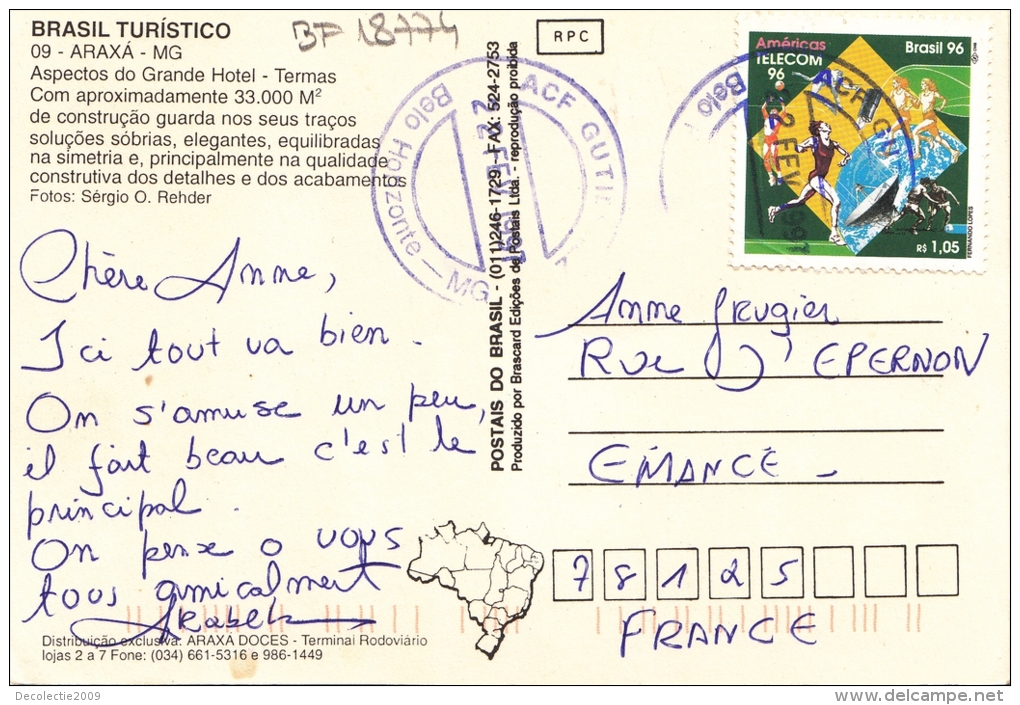 BRASIL TURÍSTICO
09 - ARAXÁ - MG
Aspectos do Grande Hotel - Termas
Com aproximadamente 33.000 M²
de construção guarda nos seus traços
soluções sóbrias, elegantes, equilibradas
na simetria e, principalmente na qualidade
construtiva dos detalhes e dos acabamentos
Fotos: Sérgio O. Rehder
BF 18774
RPC
Américas
TELECOM
96
Brasil 96
R$ 1,05
FERNANDO LOPES
ACF GUTI
Belo Horizonte - MG
ACF GU
Belo
FEV
POSTAIS DO BRASIL - (011)246-1729 - FAX: 524-2753
Produzido por Brascard Edições de Postais Ltda. - reprodução proibida
Chère Anne,
Ici tout va bien.
On s'amuse un peu,
il fait beau c'est le
principal.
On pense a vous
tous amicalement
Anne Grugier
Rue D'EPERNON
EMANCÉ -
78125
FRANCE
Distribuição exclusiva: ARAXA DOCES - Terminal Rodoviário
lojas 2 a 7 Fone: (034) 661-5316 e 986-1449
Decolectie2009
www.delcampe.net